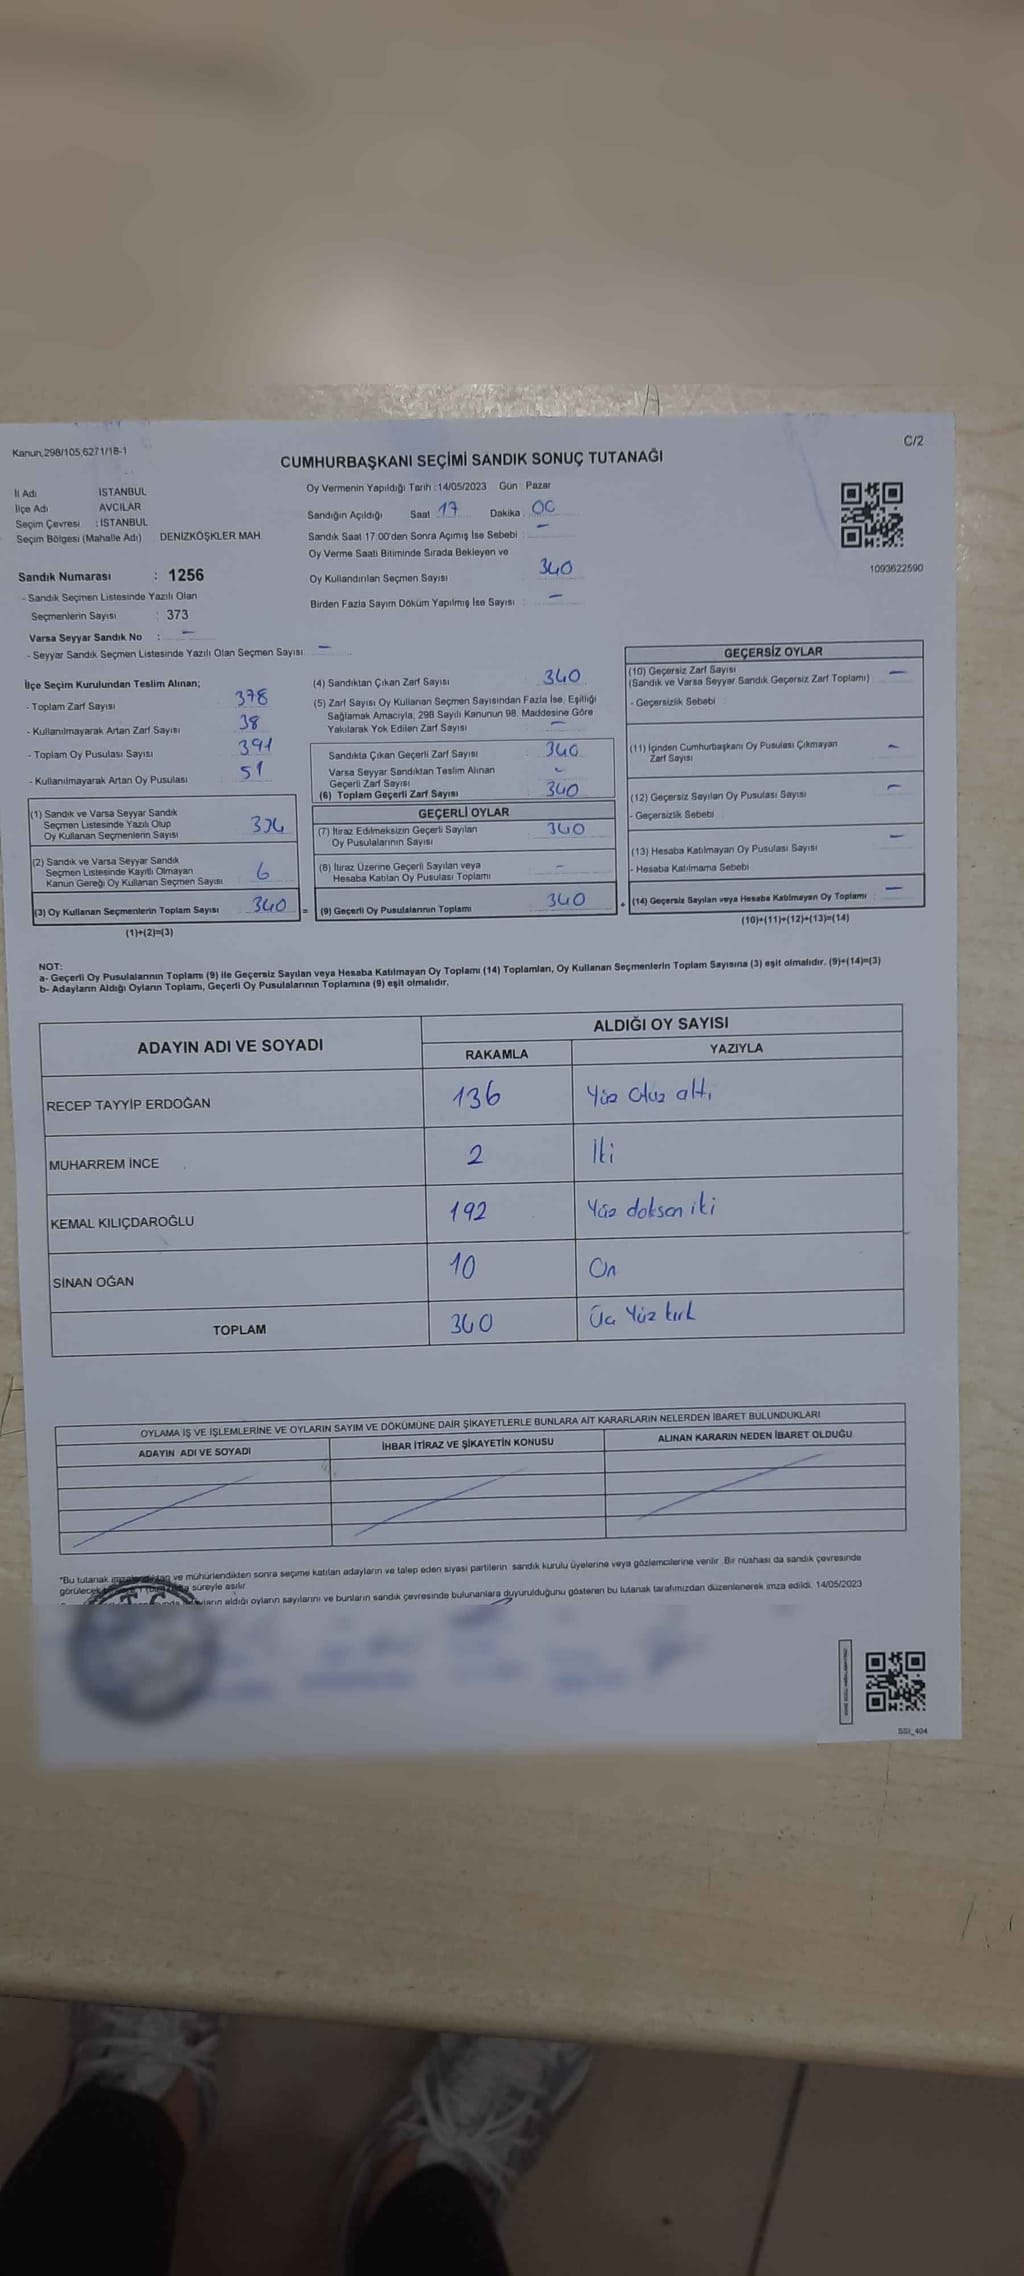 Kanun,298/105,6271/18-1
C/2
CUMHURBAŞKANI SEÇİMİ SANDIK SONUÇ TUTANAĞI
İl Adı İSTANBUL
İlçe Adı AVCILAR
Seçim Çevresi : İSTANBUL
Seçim Bölgesi (Mahalle Adı) DENİZKÖŞKLER MAH.
Sandık Numarası : 1256
- Sandık Seçmen Listesinde Yazılı Olan
Seçmenlerin Sayısı : 373
Varsa Seyyar Sandık No : -
- Seyyar Sandık Seçmen Listesinde Yazılı Olan Seçmen Sayısı : -
Oy Vermenin Yapıldığı Tarih : 14/05/2023 Gün : Pazar
Sandığın Açıldığı Saat 17 Dakika 00
Sandık Saat 17.00'den Sonra Açımış İse Sebebi : -
Oy Verme Saati Bitiminde Sırada Bekleyen ve
Oy Kullandırılan Seçmen Sayısı 340
Birden Fazla Sayım Döküm Yapılmış İse Sayısı : -
1093622590
İlçe Seçim Kurulundan Teslim Alınan;
- Toplam Zarf Sayısı 378
- Kullanılmayarak Artan Zarf Sayısı 38
- Toplam Oy Pusulası Sayısı 391
- Kullanılmayarak Artan Oy Pusulası 51
(1) Sandık ve Varsa Seyyar Sandık
Seçmen Listesinde Yazılı Olup
Oy Kullanan Seçmenlerin Sayısı 334
(2) Sandık ve Varsa Seyyar Sandık
Seçmen Listesinde Kayıtlı Olmayan
Kanun Gereği Oy Kullanan Seçmen Sayısı 6
(3) Oy Kullanan Seçmenlerin Toplam Sayısı 340 =
(1)+(2)=(3)
(4) Sandıktan Çıkan Zarf Sayısı 340
(5) Zarf Sayısı Oy Kullanan Seçmen Sayısından Fazla İse, Eşitliği
Sağlamak Amacıyla, 298 Sayılı Kanunun 98. Maddesine Göre
Yakılarak Yok Edilen Zarf Sayısı -
Sandıkta Çıkan Geçerli Zarf Sayısı 340
Varsa Seyyar Sandıktan Teslim Alınan
Geçerli Zarf Sayısı -
(6) Toplam Geçerli Zarf Sayısı 340
GEÇERLİ OYLAR
(7) İtiraz Edilmeksizin Geçerli Sayılan
Oy Pusulalarının Sayısı 340
(8) İtiraz Üzerine Geçerli Sayılan veya
Hesaba Katılan Oy Pusulası Toplamı -
(9) Geçerli Oy Pusulalarının Toplamı 340 +
GEÇERSİZ OYLAR
(10) Geçersiz Zarf Sayısı
(Sandık ve Varsa Seyyar Sandık Geçersiz Zarf Toplamı) -
- Geçersizlik Sebebi
(11) İçinden Cumhurbaşkanı Oy Pusulası Çıkmayan
Zarf Sayısı -
(12) Geçersiz Sayılan Oy Pusulası Sayısı -
- Geçersizlik Sebebi
(13) Hesaba Katılmayan Oy Pusulası Sayısı -
- Hesaba Katılmama Sebebi
(14) Geçersiz Sayılan veya Hesaba Katılmayan Oy Toplamı -
(10)+(11)+(12)+(13)=(14)
NOT:
a- Geçerli Oy Pusulalarının Toplamı (9) ile Geçersiz Sayılan veya Hesaba Katılmayan Oy Toplamı (14) Toplamları, Oy Kullanan Seçmenlerin Toplam Sayısına (3) eşit olmalıdır. (9)+(14)=(3)
b- Adayların Aldığı Oyların Toplamı, Geçerli Oy Pusulalarının Toplamına (9) eşit olmalıdır.
ADAYIN ADI VE SOYADI ALDIĞI OY SAYISI
RAKAMLA YAZIYLA
RECEP TAYYİP ERDOĞAN 136 Yüz Otuz altı
MUHARREM İNCE 2 İki
KEMAL KILIÇDAROĞLU 192 Yüz doksan iki
SİNAN OĞAN 10 On
TOPLAM 340 Üç Yüz kırk
OYLAMA İŞ VE İŞLEMLERİNE VE OYLARIN SAYIM VE DÖKÜMÜNE DAİR ŞİKAYETLERLE BUNLARA AİT KARARLARIN NELERDEN İBARET BULUNDUKLARI
ADAYIN ADI VE SOYADI İHBAR İTİRAZ VE ŞİKAYETİN KONUSU ALINAN KARARIN NEDEN İBARET OLDUĞU
"Bu tutanak ve mühürlendikten sonra seçime katılan adayların ve talep eden siyasi partilerin sandık kurulu üyelerine veya gözlemcilerine verilir. Bir nüshası da sandık çevresinde
süreyle asılır.
aldığı oyların sayılarını ve bunların sandık çevresinde bulunanlara duyurulduğunu gösteren bu tutanak tarafımızdan düzenlenerek imza edildi. 14/05/2023
T.C.
SSİ_404